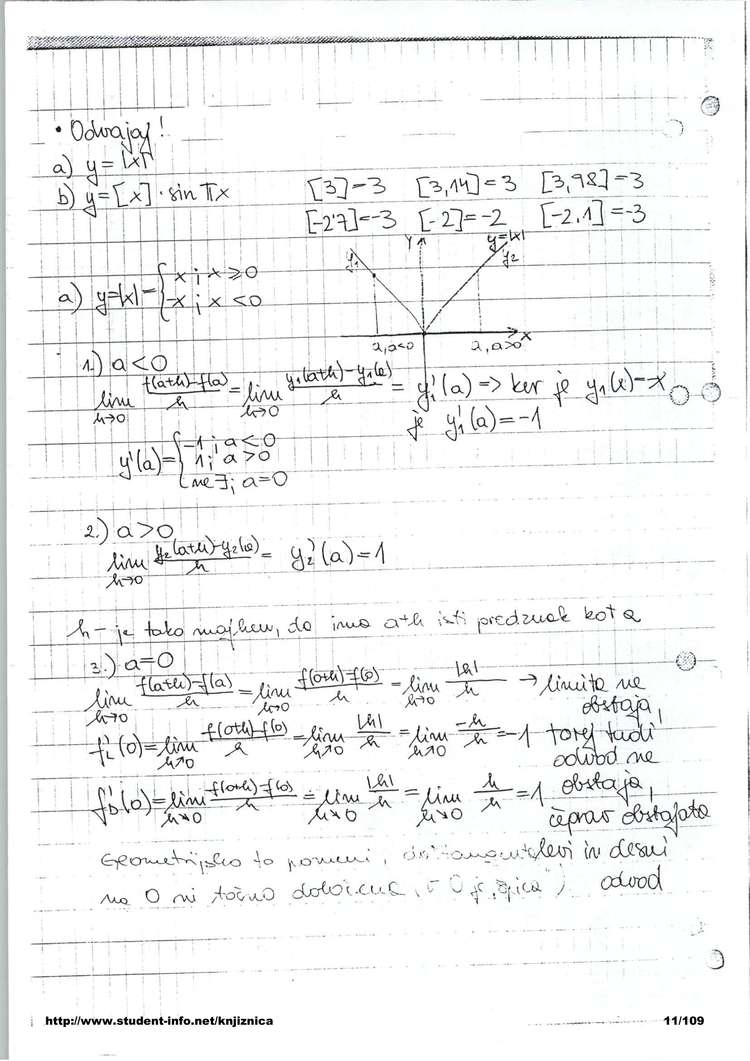 • Odvajaj!
a) y=|x|
b) y=[x]·sin πx
[3]=3 [3,14]=3 [3,98]=3
[-2'7]=-3 [-2]=-2 [-2,1]=-3
y=|x|
Y
y₁
y₂
a) y=|x|={x ; x≥0
-x ; x<0
a, a<0 a, a>0 x
1.) a<0
lim h→0 (f(a+h)-f(a))/h = lim h→0 (y₁(a+h)-y₁(a))/h = y₁'(a) => ker je y₁(x)=-x
je y₁'(a)=-1
y'(a)={-1 ; a<0
1 ; a>0
ne ∃ ; a=0
2.) a>0
lim h→0 (y₂(a+h)-y₂(a))/h = y₂'(a)=1
h - je tako majhen, da ima a+h isti predznak kot a
3.) a=0
lim h→0 (f(a+h)-f(a))/h = lim h→0 (f(0+h)-f(0))/h = lim h→0 |h|/h → limita ne
obstaja,
f'L(0)=lim h↗0 (f(0+h)-f(0))/h = lim h↗0 |h|/h = lim h↗0 -h/h = -1 torej tudi
odvod ne
f'D(0)=lim h↘0 (f(0+h)-f(0))/h = lim h↘0 |h|/h = lim h↘0 h/h = 1 obstaja,
čeprav obstajata
levi in desni
odvod
Geometrijsko to pomeni, da tangenta
na 0 ni točno določena, v 0 je "špica"
http://www.student-info.net/knjiznica 11/109